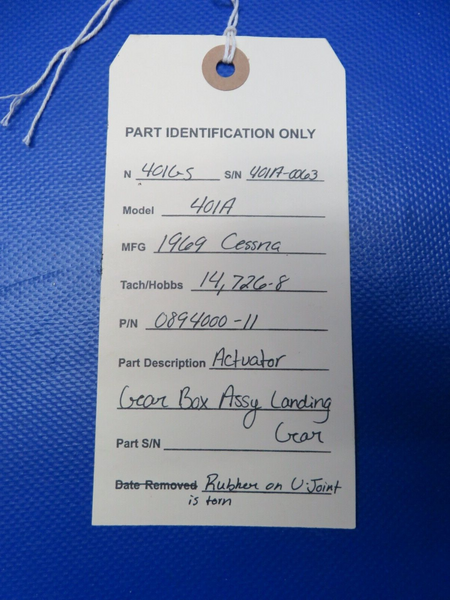 PART IDENTIFICATION ONLY
N 401GS S/N 401A-0063
Model 401A
MFG 1969 Cessna
Tach/Hobbs 14,726.8
P/N 0894000-11
Part Description Actuator
Gear Box Assy Landing
Gear
Part S/N
Date Removed Rubber on U-Joint
is torn